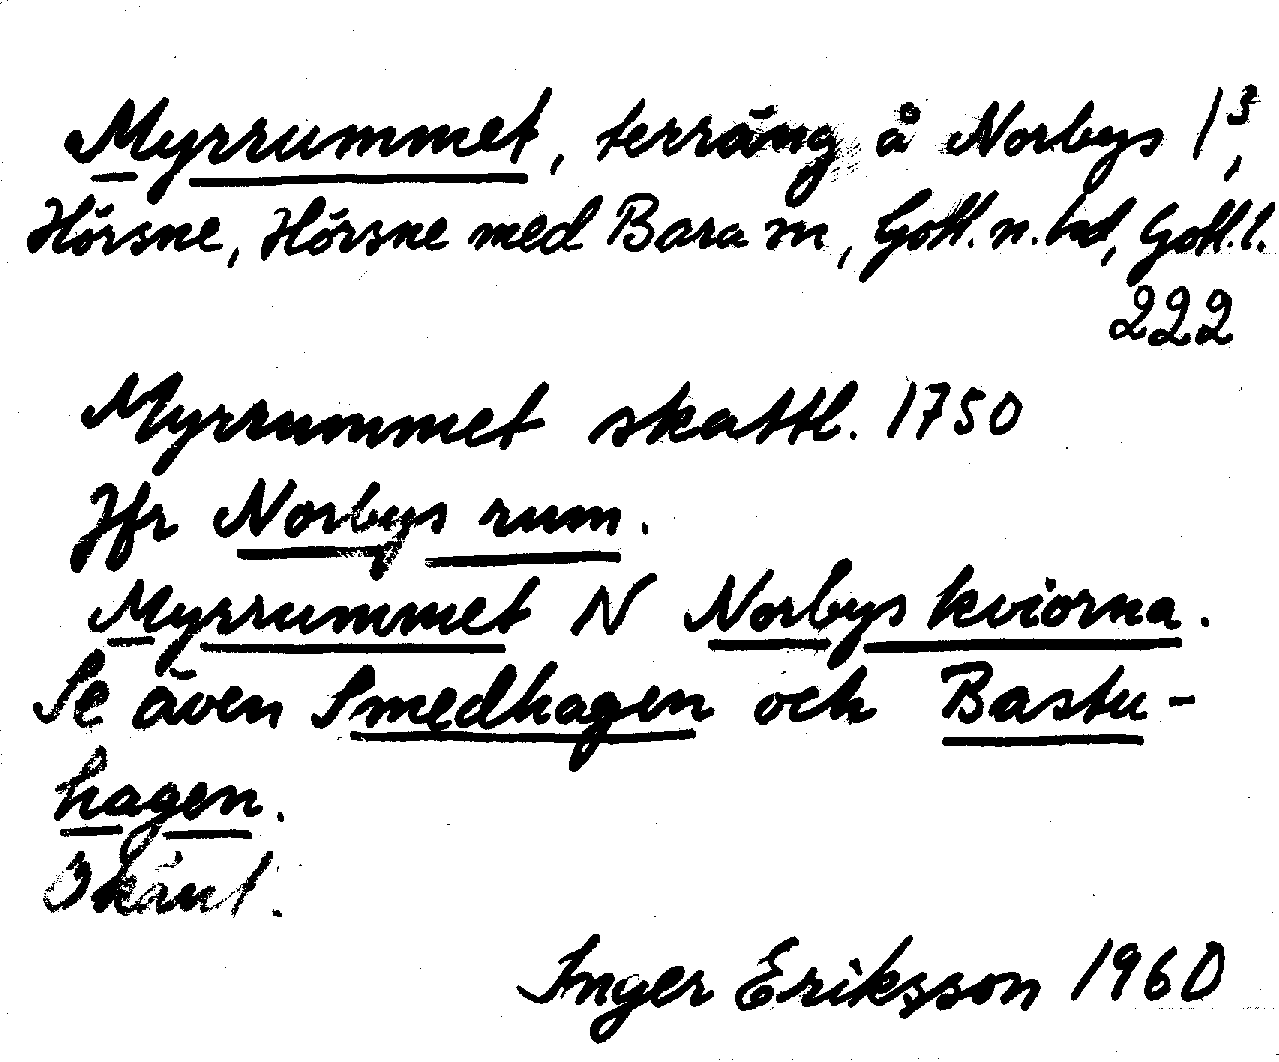 Myrrummet, terräng å Norbys 1³,
Hörsne, Hörsne med Bara sn, Gotl. n. hd, Gotl. l.
222
Myrrummet skattl. 1750
Jfr Norbys rum.
Myrrummet N Norbys kviorna.
Se även Smedhagen och Bastu-
hagen.
Okänt.
Inger Eriksson 1960